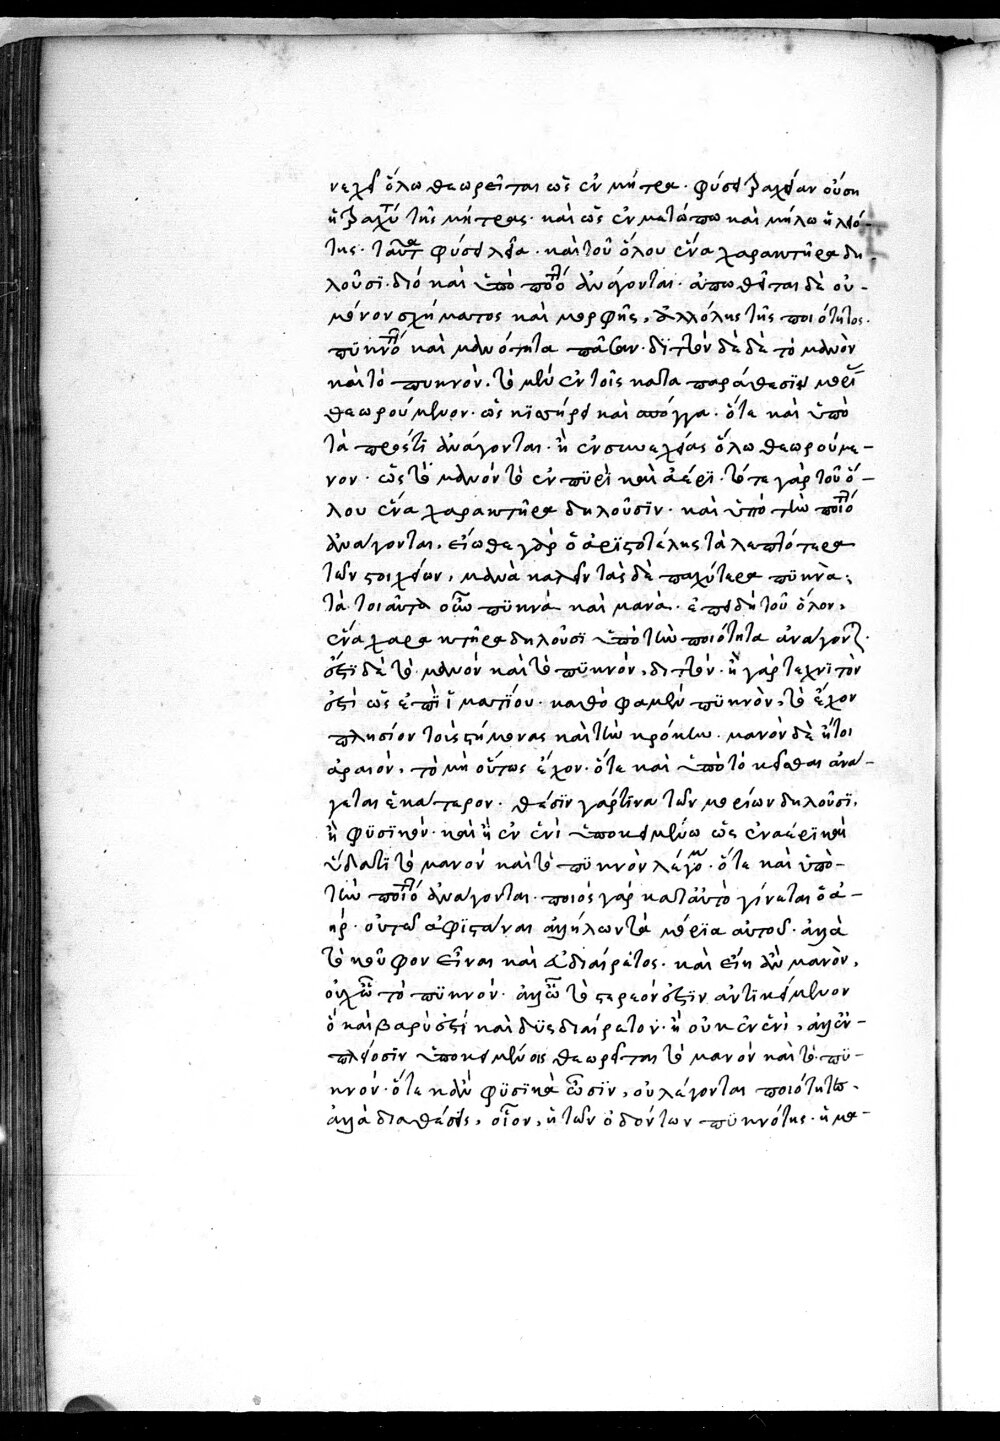 νεχεῖ ὅλω θεωρεῖται ὡς ἐν μήτρα· φύσει βραχεῖαν οὔση
ἡ βραχύτης τῆς μήτρας· καὶ ὡς ἐν μετώπω καὶ μήλω ἡ λειό-
της· ταῦτα φύσει λεῖα· καὶ τοῦ ὅλου ἕνα χαρακτῆρα δη-
λοῦσι· διό καὶ ὑπὸ ποιότητα ἀνάγονται· ἀπωθεῖται δὲ οὐ
μόνον σχήματος καὶ μορφῆς, ἀλλ' ὅλης τῆς ποιότητος·
πυκνότητα καὶ μανότητα πᾶσαν· διττὸν δὲ δὲ τὸ μανὸν
καὶ τὸ πυκνὸν. τὸ μὲν ἐν τοῖς κατα παράθεσιν μορίοις
θεωρούμενον· ὡς κισσήρει καὶ σπόγγω· ὅτε καὶ ὑπὸ
τὰ πρός τι ἀνάγονται· ἢ ἐν συνεχείας ὅλω θεωρούμε-
νον· ὡς τὸ μανόν τὸ ἐν πυρὶ καὶ ἀέρι· τότε γὰρ τοῦ ὅ-
λου ἕνα χαρακτῆρα δηλοῦσιν· καὶ ὑπὸ τὴν ποιότητα
ἀνάγονται. εἴωθε γὰρ ὁ ἀριστοτέλης τὰ λεπτότερα
τῶν στοιχείων, μανὰ καλεῖν τὰς δὲ παχύτερα πυκνὰ·
τὰ τοιαῦτα οὖν πυκνά καὶ μανά· ἐπειδὴ τοῦ ὅλου,
ἕνα χαρακτῆρα δηλοῦσι ὑπὸ τὴν ποιότητα ἀνάγονται·
ἐστι δὲ τὸ μανόν καὶ τὸ πυκνόν, διττόν· ἢ γὰρ τεχνιτὸν
ἐστί ὡς ἐπὶ ἱματίου· καθὸ φαμὲν πυκνὸν, τὸ ἔχον
πλησίον τοὺς στήμονας καὶ τὴν κρόκην· μανόν δὲ ἤτοι
ἀραιόν, τὸ μὴ οὕτως ἔχον· ὅτε καὶ ὑπὸ τὸ κεῖσθαι ἀνά-
γεται ἑκάτερον· θέσιν γάρ τινα τῶν μορίων δηλοῦσι.
ἢ φυσικόν· καὶ ἢ ἐν ἑνὶ ὑποκειμένω ὡς ἐν ἀέρι καὶ
ὕδατι τὸ μανον καὶ τὸ πυκνὸν λέγομεν· ὅτε καὶ ὑπὸ
τὴν ποιότητα ἀνάγονται· ποιός γάρ κατ αὐτὸ γίνεται ὁ ἀ-
ήρ· οὐ τῶ ἀφιστάναι ἀλλήλων τὰ μόρια αὐτοῦ· ἀλλὰ
τὸ κοῦφον εἶναι καὶ εὐδιαίρετος· καὶ εἴη ἂν μανὸν,
οὐχ ὧ τὸ πυκνόν· ἀλλ' ὧ τὸ στερεόν ἐστιν ἀντικείμενον
ὁ καὶ βαρὺ ἐστί καὶ δυσδιαίρετον· ἢ οὐκ ἐν ἑνί, ἀλλ' ἐν
πλείοσιν ὑποκειμένοις θεωρεῖται τὸ μανον καὶ τὸ πυ-
κνόν· ὅτε κἀν φυσικὰ ὦσιν, οὐ λέγονται ποιότητες,
ἀλλὰ διαθέσεις, οἷον, ἡ τῶν ὀδόντων πυκνότης· ἡ μα-